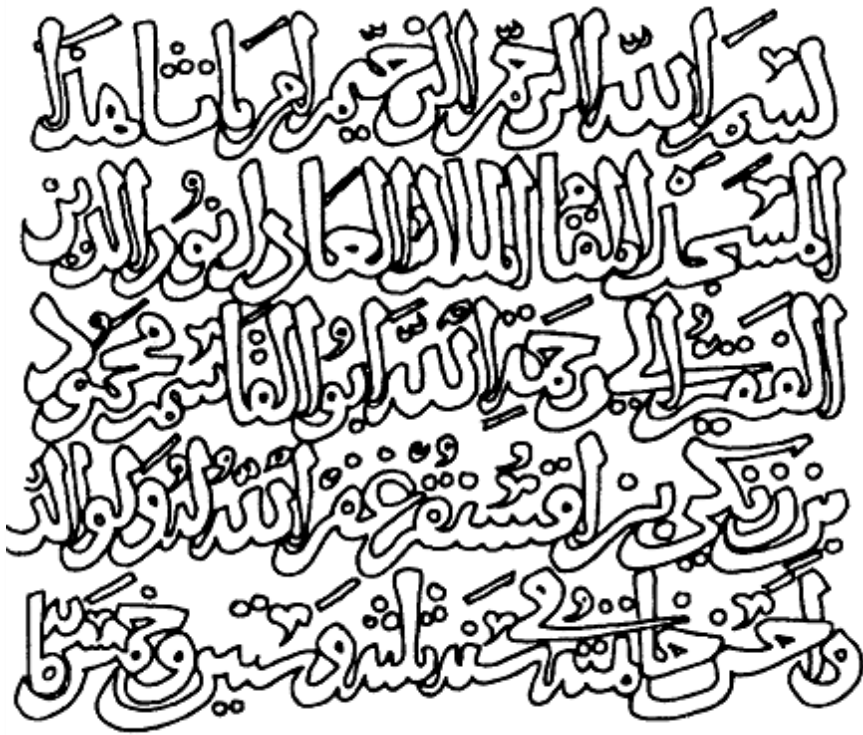 بسم الله الرحمن الرحيم امر بانشا هذا
المسجد الملك العادل نور الدين
الفقير الى رحمة الله ابو القاسم محمود
بن زنكي بن اقسنقر غفر الله له ولوالد
واحسن خاتمته في سنة ثلث وستين وخمسما